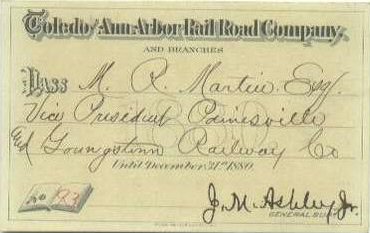 Toledo and Ann Arbor Rail Road Company.
AND BRANCHES
PASS M. R. Martin Esq.
Vice President Painesville
and Youngstown Railway Co
Until December 31st 1880.
No 193
J. M. Ashley Jr.
GENERAL SUPT